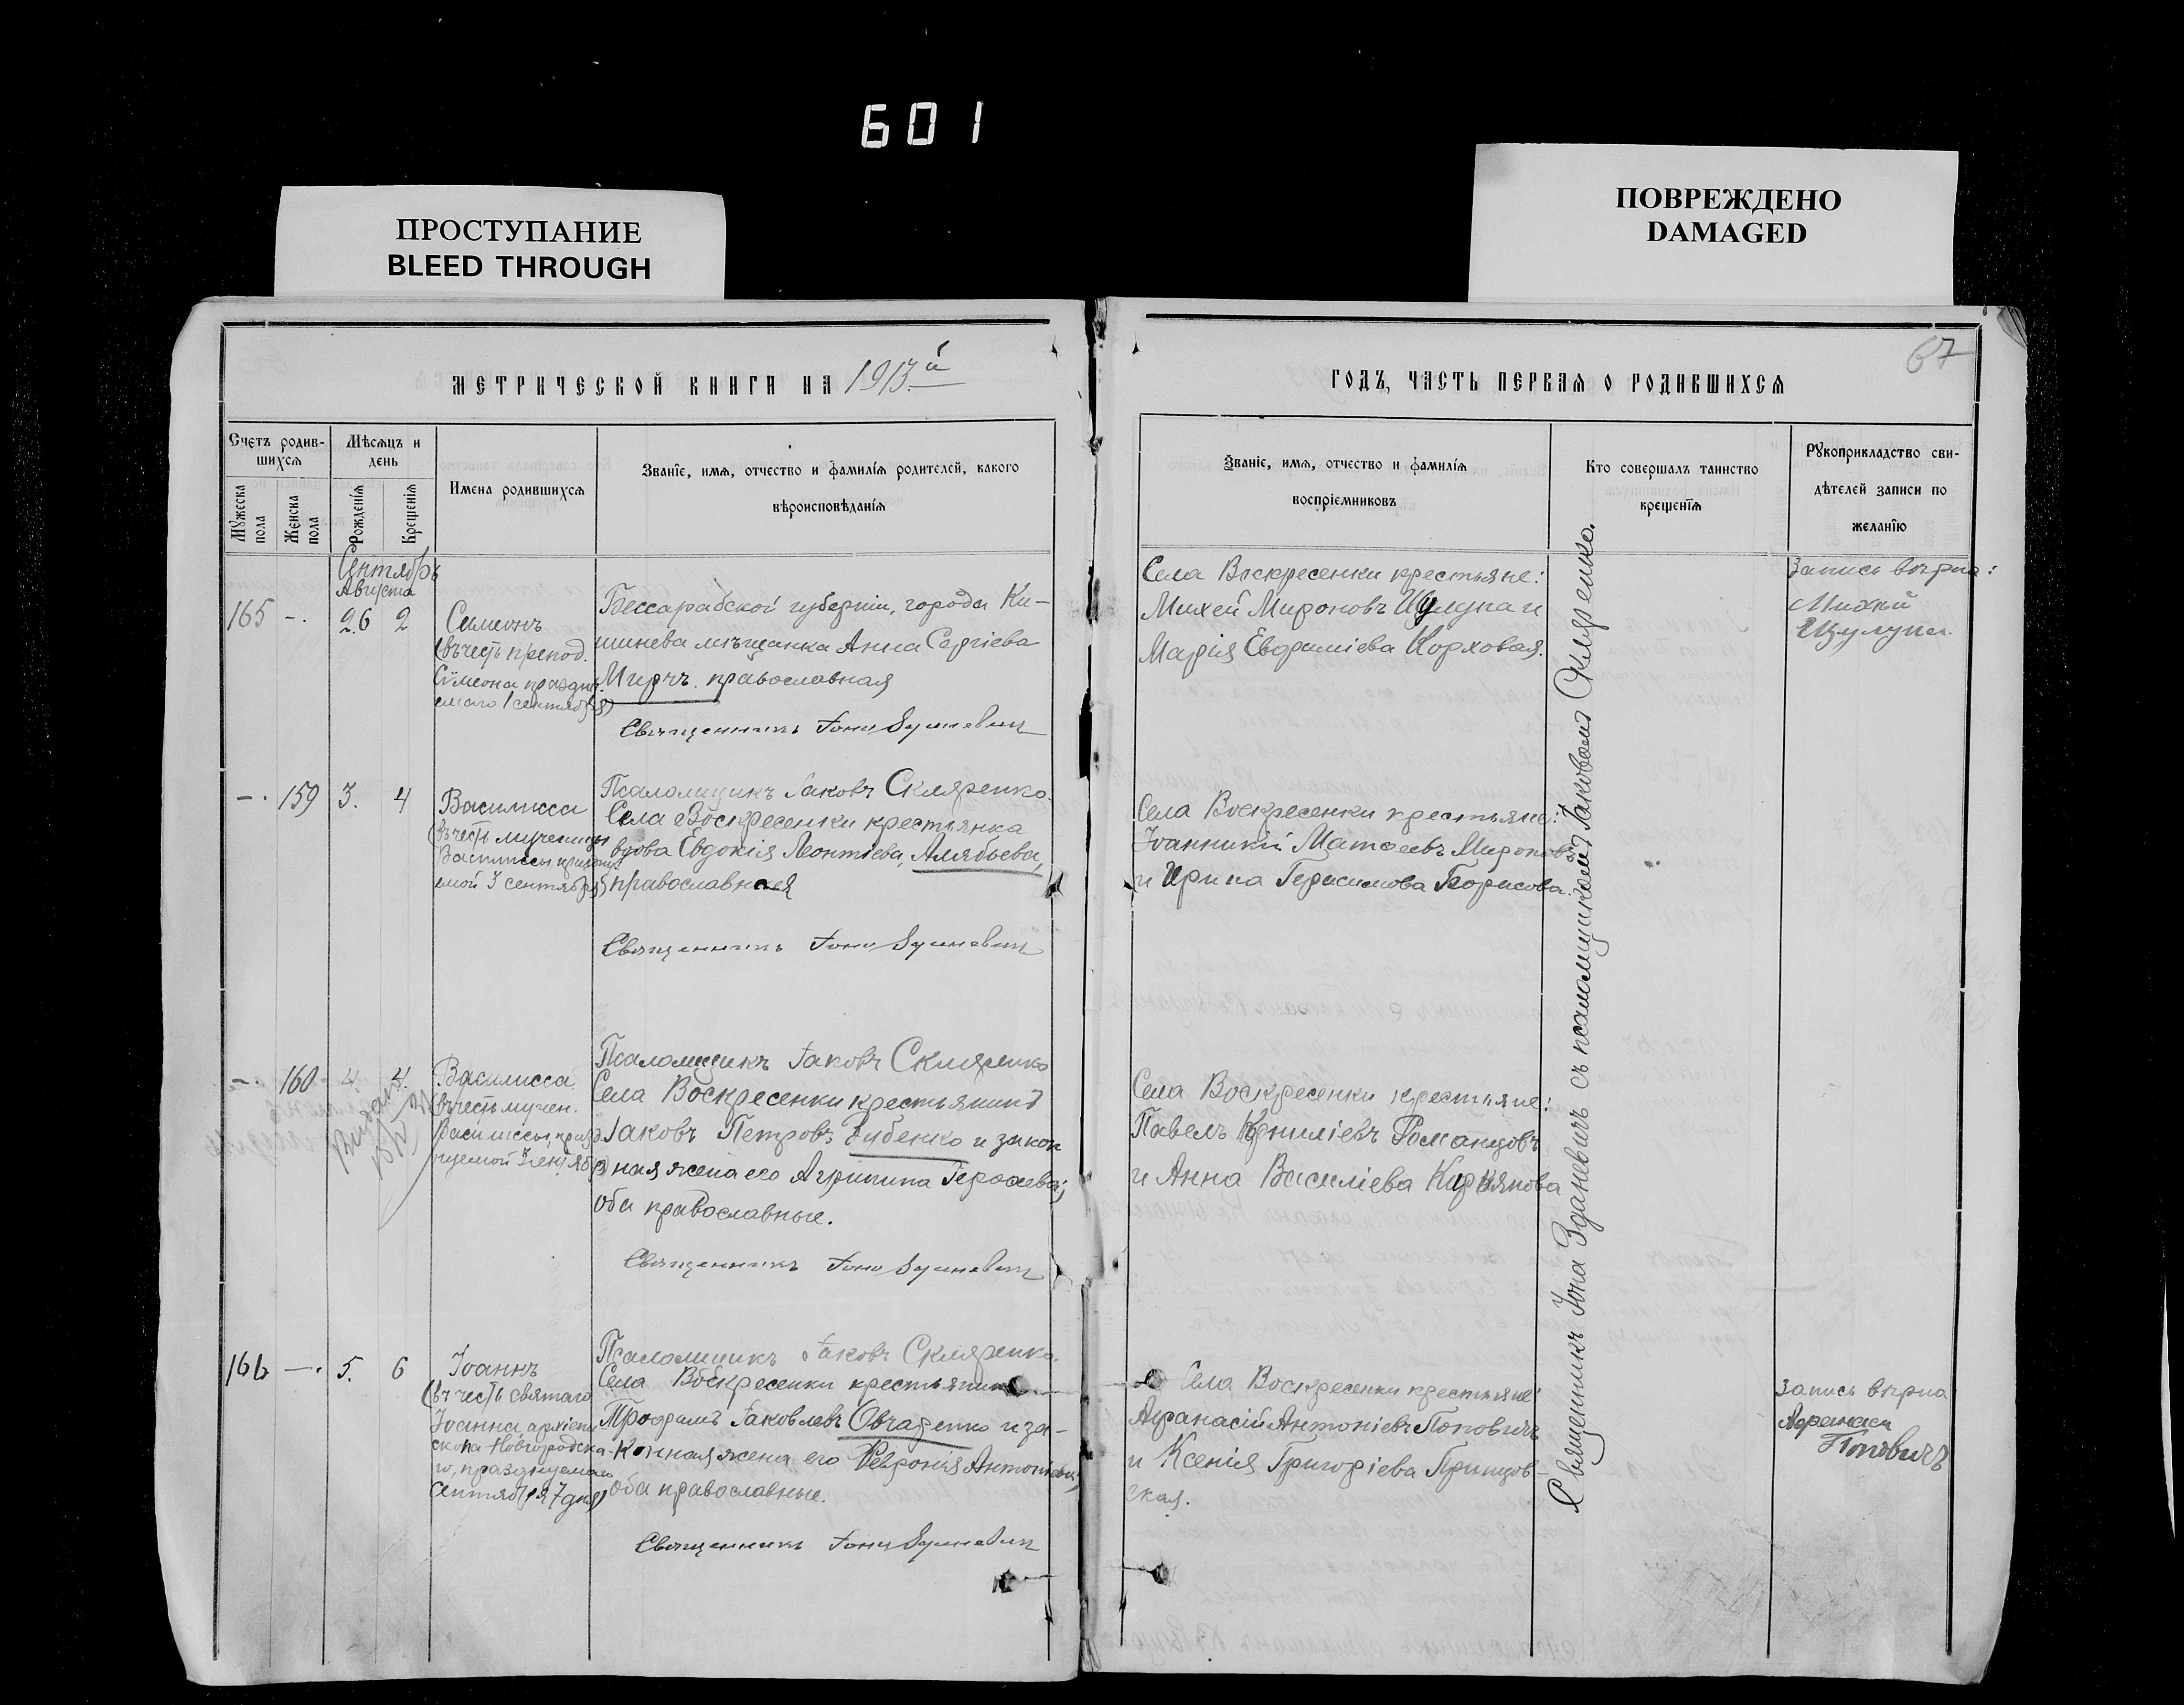 601
ПРОСТУПАНИЕ
BLEED THROUGH
ПОВРЕЖДЕНО
DAMAGED
МЕТРИЧЕСКОЙ КНИГИ НА 1913й
Счетъ родив-
шихся
Мужеска пола
Женска пола
Мѣсяцъ и
день
Рожденія
Крещенія
Имена родившихся
Званіе, имя, отчество и фамилія родителей, какого
вѣроисповѣданія
Сентябрь
Августа
165 -. 26 2
Симеонъ
(въ честь препод.
Сѵмеона праздну.
емаго 1 сентября)
Бессарабской губерніи, города Ки-
шинева мѣщанка Анна Сергіева
Мирчъ православная
Священникъ Іона
Псаломщикъ Іаковъ Скляренко.
-. 159 3. 4
Василисса
(въ честь мученицы
Василиссы
емой 3 сентября)
Села Воскресенки крестьянка
вдова Евдокія Леонтіева, Алябьева,
православная
Священникъ Іона
Псаломщикъ Іаковъ Скляренко
-. 160 4. 4.
Василисса
(въ честь мучен.
Василиссы, празд
нуемой 3 сентября)
Села Воскресенки крестьянинъ
Іаковъ Петровъ и закон
ная жена его Агрипина
оба православные.
Священникъ Іона
Псаломщикъ Іаковъ Скляренко.
166 -. 5. 6
Іоаннъ
(въ честь святаго
Іоанна, архіепи
скопа Новгородска-
го, празднуемаго
Сентября 7 дня)
Села Воскресенки крестьянинъ
Трофимъ Іаковлевъ Овчаренко и за-
конная жена его Феѵронія Антоніева,
оба православные.
Священникъ Іона
67
ГОДЪ, ЧАСТЬ ПЕРВАЯ О РОДИВШИХСЯ
Званіе, имя, отчество и фамилія
воспріемниковъ
Кто совершалъ таинство
крещенія
Рукоприкладство сви-
дѣтелей записи по
желанію
Села Воскресенки крестьяне:
Михей Мироновъ Шулупа и
Марія Евфиміева Корховая.
Запись вѣрна:
Михей
Шулупа.
Села Воскресенки крестьяне:
Іоанникій Матѳеевъ Мироновъ
и Ирина Герасимова Борисова.
Села Воскресенки крестьяне:
Павелъ Корниліевъ Романцовъ
и Анна Василіева
Села Воскресенки крестьяне
Афанасій Антоніевъ Поповичъ
и Ксенія Григоріева
ская.
Запись вѣрна
Афанасій
Поповичъ
Священникъ Іона Зданевичъ съ псаломщикомъ Іаковомъ Скляренко.